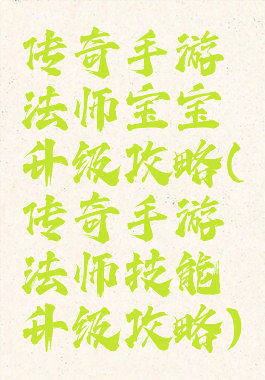 传奇手游
法师宝宝
升级攻略(
传奇手游
法师技能
升级攻略)